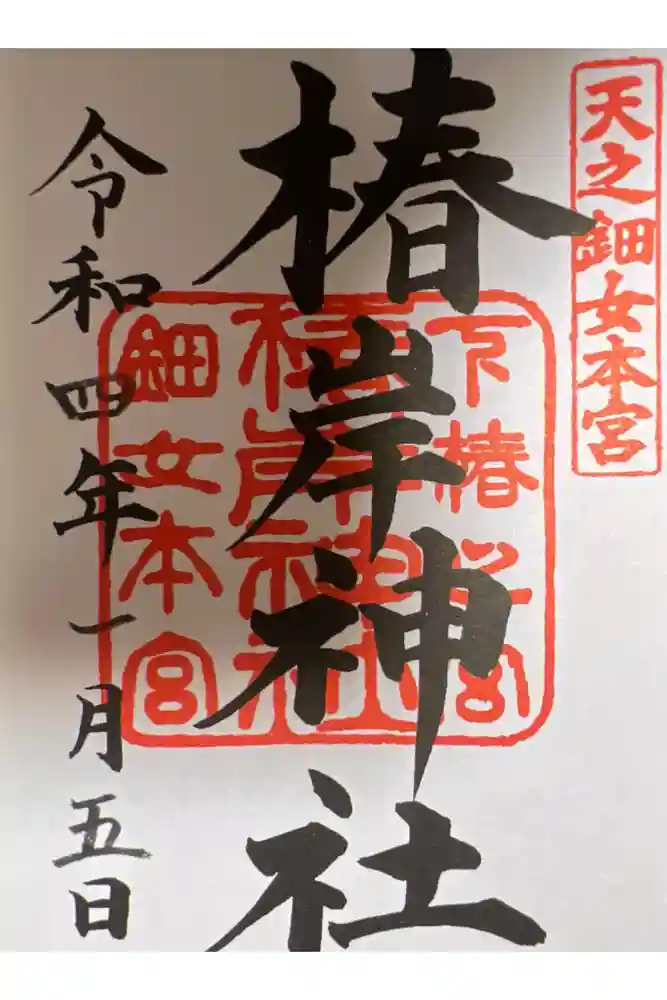 天之鈿女本宮
椿岸神社
下椿之宮
椿岸神社
鈿女本宮
令和四年一月五日